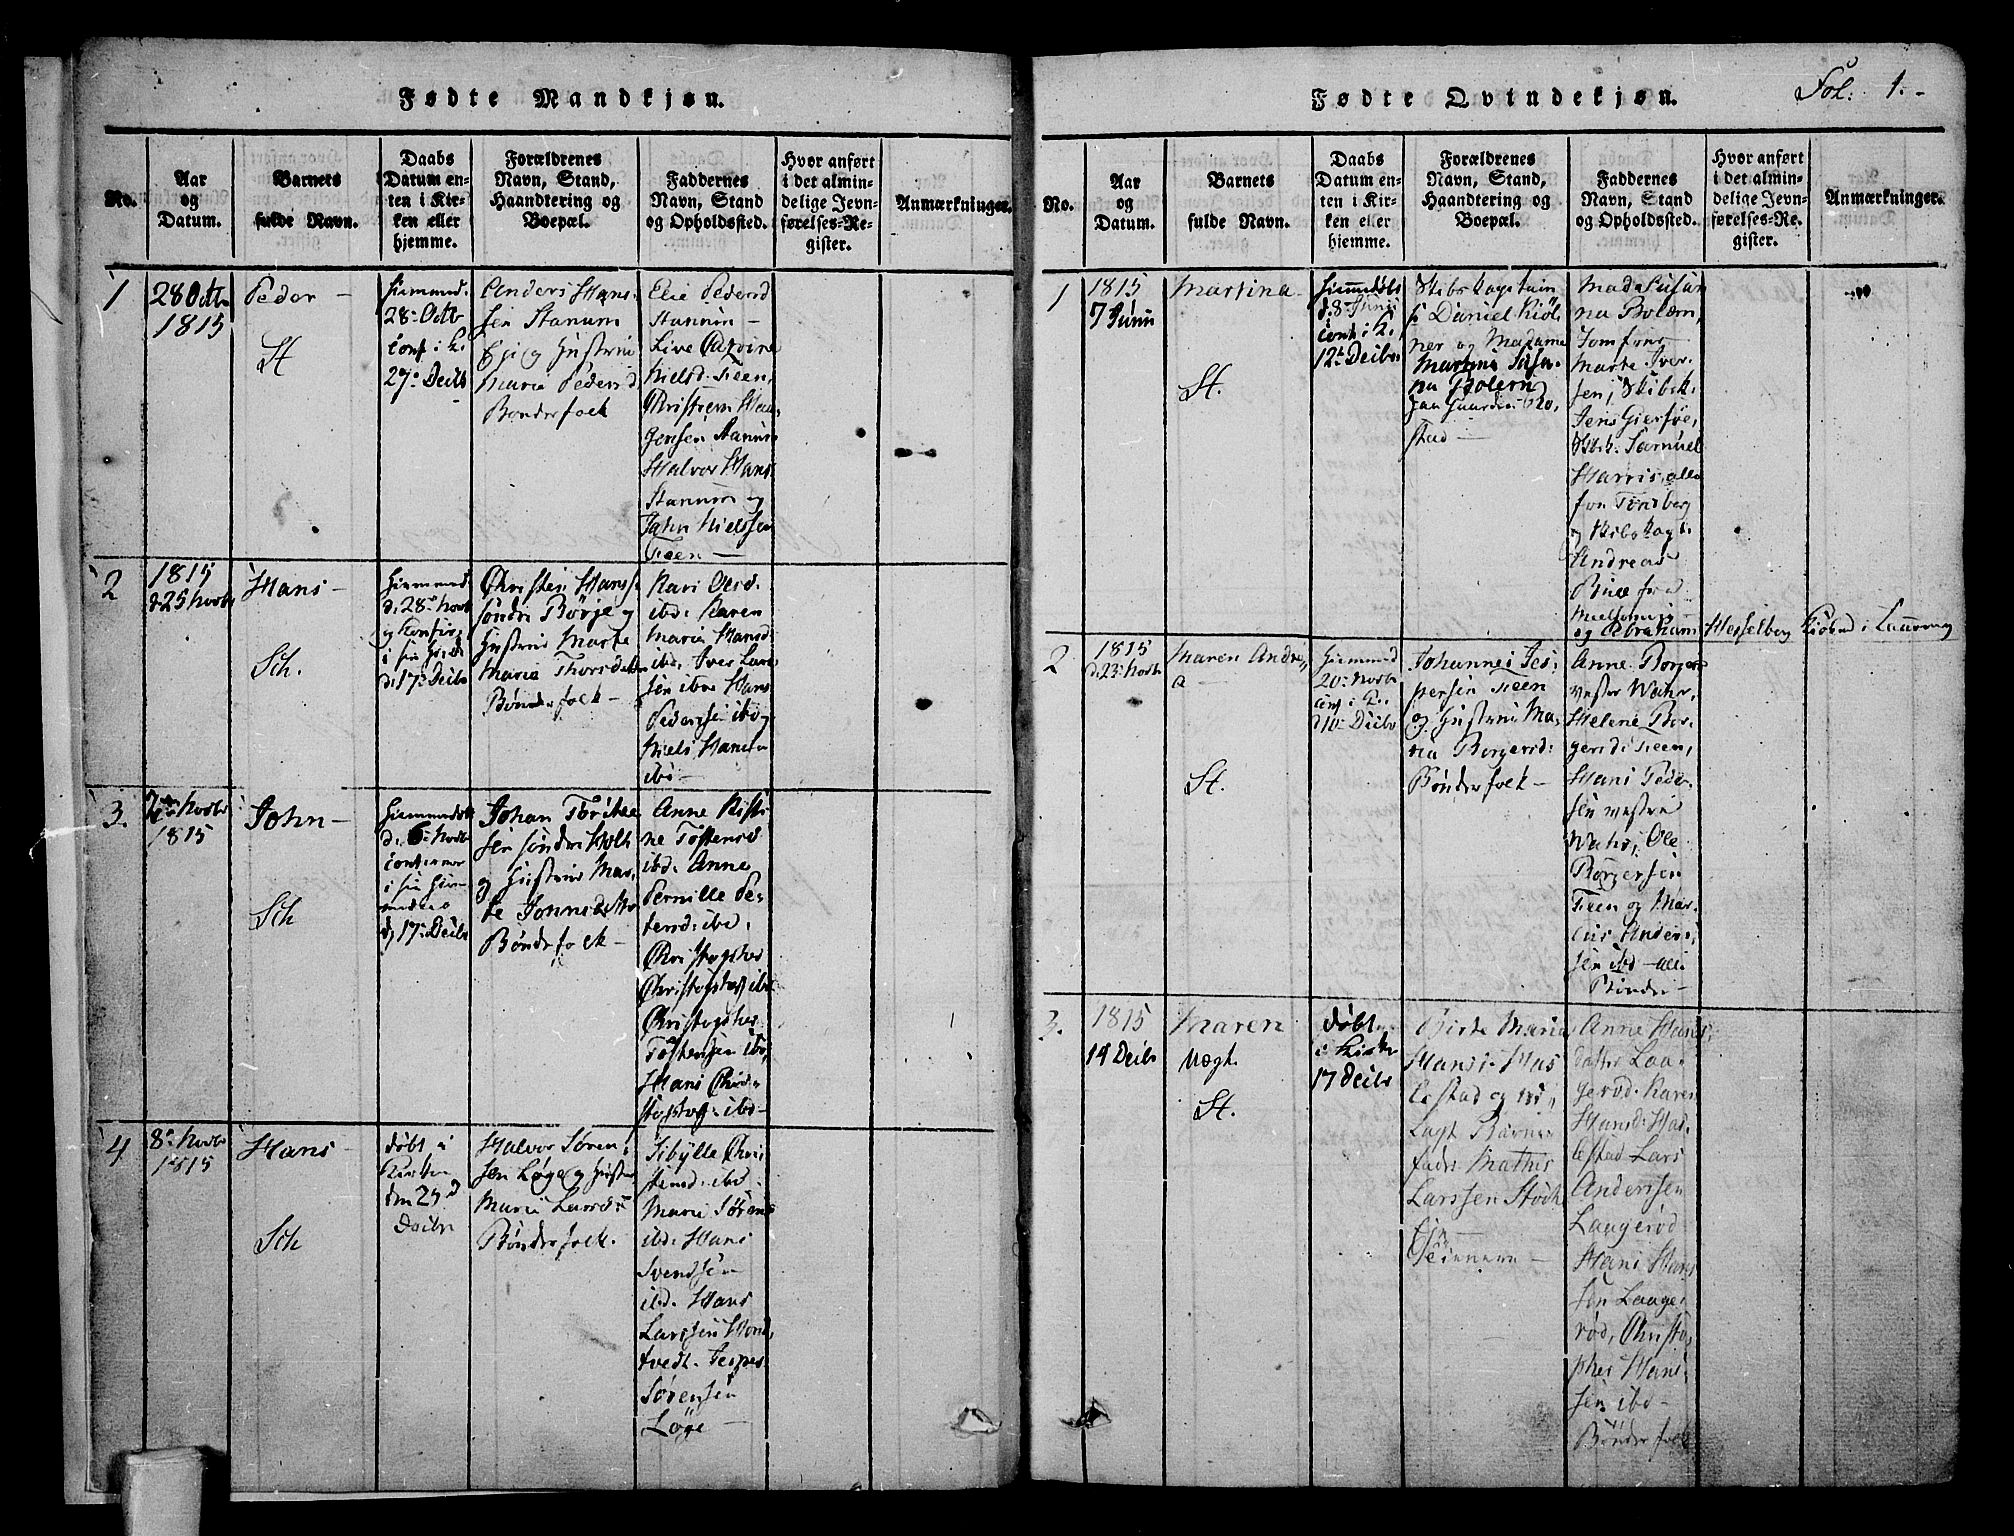 Fødte Mandkjøn.
No.
Aar
og
Datum.
Barnets
fulde Navn.
Daabs
Datum en-
ten i Kir-
ken eller
hjemme.
Forældrenes
Navn, Stand,
Haandtering og
Boepæl.
Faddernes
Navn, Stand
og Opholdssted.
Hvor anført
i det almin-
delige Jevn-
førelses-Re-
gister.
Anmærkninger.
1
28 Octr
1815
Peder
St
28 Octr
conf: i K.
27 Decbr
Anders Han-
sen Stanum
Eje og Hustrue
Maria Pedersd
Bønderfolk
Elie Pedersd
Stanum
Live Cathrine
Nielsd. Teen,
Christen Haa-
gensen Stanum
Halvor Hans
Stanum og
John Nielssen
Teen
2
1815
d. 25 Novbr
Hans
Sch.
Hjemmed.
d. 28 Novbr
og Confir:
d. 17 Decbr
Christen Hans-
søndre Børje og
Hustrue Marte
Maria Thorsdatter
Bønderfolk
Kari Olesd.
ibd. Karen
Maria Hansd
ibd. Iver Lars
sen ibd Hans
Pedersen ibd og
Niels Hansen
ibd
3.
2 Novbr
1815
John
Sch
Hjemmedøbt
d. 6 Novbr
d. 17 Decbr
Johan Torste
sen søndre Holt
og Hustrue Mar-
te Johnsd
Bønderfolk
Anne Kisti
ne Tostensd
ibd. Anne
Pernille Pe-
tersd. ibd.
Christopher
Christophers ibd
Christopher
Tostensen ibd,
Hans Chri-
stophers ibd
4
8 Novbr
1815
Hans
Sch
døbt i
Kirken
den 29
Decbr
Halvor Søren
sen Løge og Hustrue
Maria Larsd
Bønderfolk.
Sibylle Chri
stensd. ibd
Mari Sørens
ibd. Hans
Svendsen
ibd. Hans
Larssen Hond
tvedt. Jesper
Sørensen
Løge
Fødte Qvindekjøn.
Fol: 1.
No.
Aar
og
Datum.
Barnets
fulde Navn.
Daabs
Datum en-
ten i Kir-
ken eller
hjemme.
Forældrenes
Navn, Stand,
Haandtering og
Boepæl.
Faddernes
Navn, Stand
og Opholdssted.
Hvor anført
i det almin-
delige Jevn-
førelses-Re-
gister.
Anmærkninger.
1
1815
7 Juni
Martina
St.
Hjemmdøbt
d. 8 Junii
conf: i K.
12 Decbr
Skibs Captain
Daniel Kiøl-
ner og Madame
Martine Susa-
na Bolern
paa Gaarden Ro,
stad
Mad. Susan
na Bolærn,
Jomfrue
Marte Iver-
sen, Skibsk.
Jens Gierløe,
Skib. Samuel
Harris, alle
fra Tønsberg
og Skibs Capt:
Andreas
Bull fra
Melsomvig
og Abraham Hesselberg Kiøbmd i Laurvig
2
1815
d. 23 Novbr
Maren Andre,
a
St.
Hjemmed
20 Novbr
conf i K.
d 10 Decbr
Johannes Jes-
persen Teen
og Hustrue Ma-
ria Borgersd:
Bønderfolk
Anne Borgers
vestre Wahr,
Helene Bor-
gersd: Teen,
Hans Peder-
sen vestre
Wahr, Ole
Borgersen
Teen og Mar-
cus Anders-
sen ibd alle
Bønder
3.
1815
14 Decbr
Maren
Uægt.
St.
døbt
i Kirke
17 Decbr
Birte Maria
Hansd. Has
lestad og ud-
lagt Barne
fader Mathis
Larssen Stoch
Anne Hans-
datter Laa-
gerød. Karen
Hansd. Has-
lestad Lars
Anderssen
Laagerød
Hans Hans
sen Laage-
rød, Christo-
pher Hans-
sen ibd
Bønderfolk